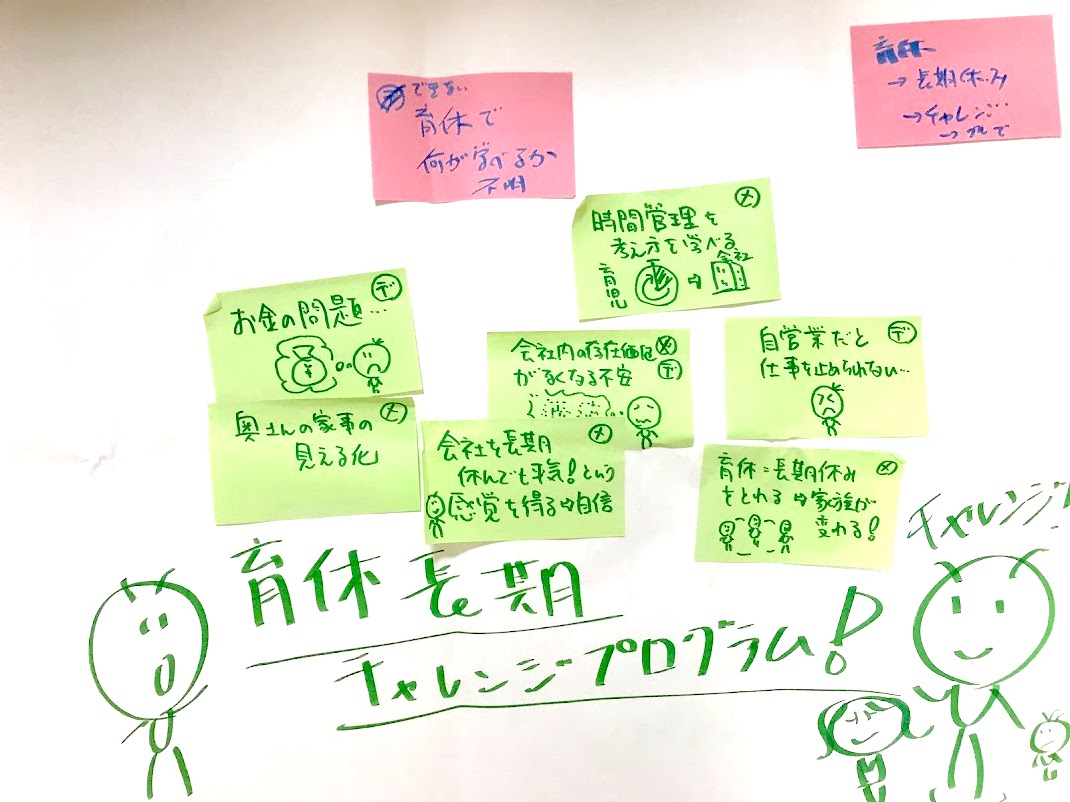 育休
→長期休み
→チャレンジ
デ できない
育休で
何が学べるか
不明
メ
時間管理を
考え方を学べる
育児
会社
デ
お金の問題…
¥
会社内の存在価値 メ
がなくなる不安 デ
デ
自営業だと
仕事を止められない…
メ
奥さんの家事の
見える化
メ
会社を長期
休んでも平気!という
感覚を得る⇨自信
メ
育休=長期休み
をとれる⇨家族が
変われる!
チャレンジ!
育休長期
チャレンジプログラム!